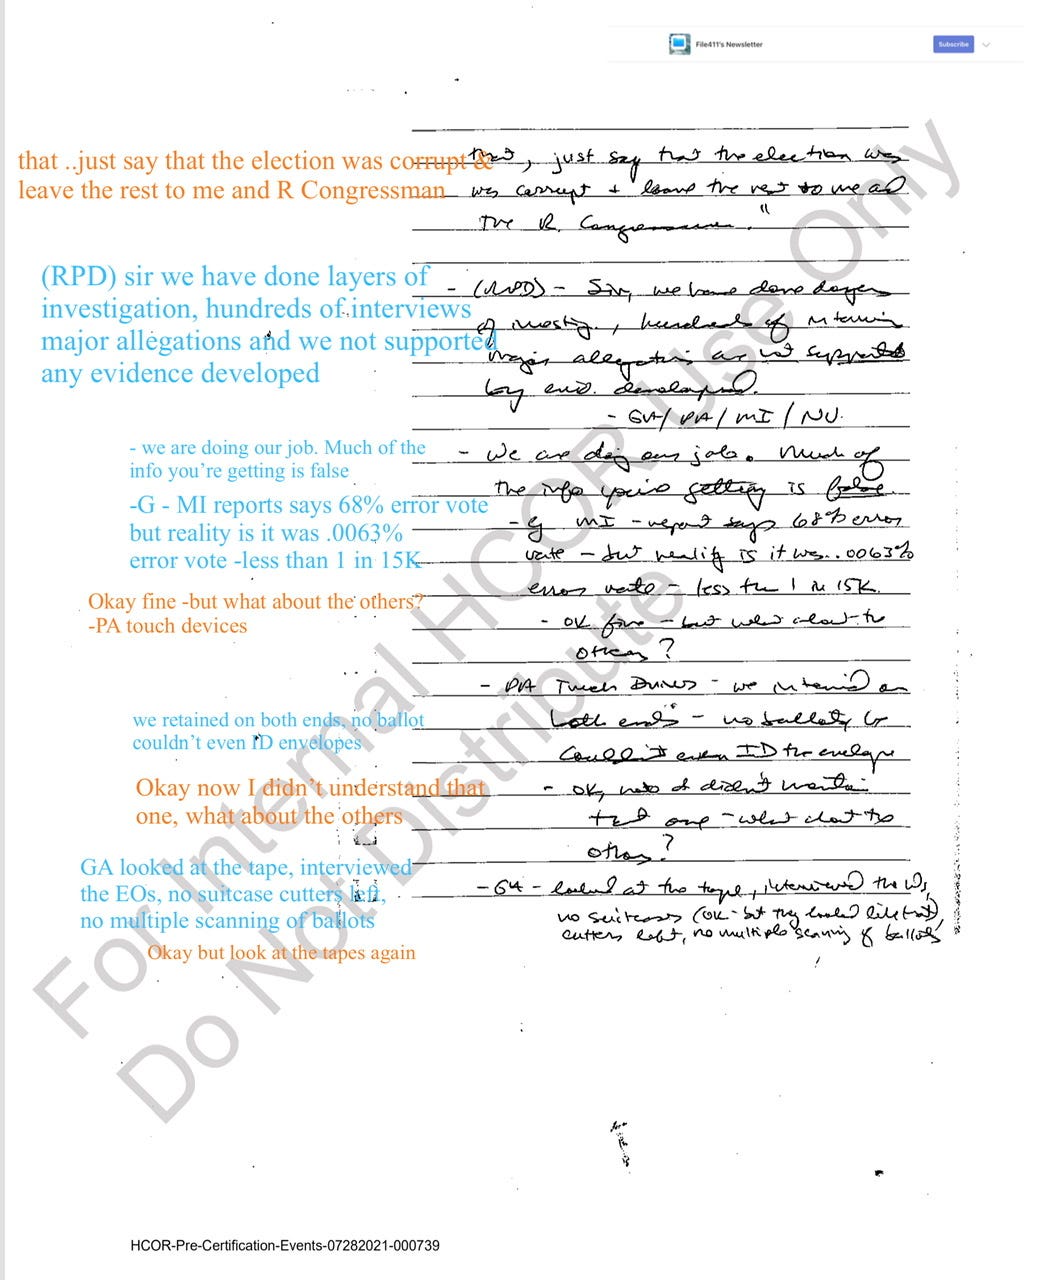 File411's Newsletter
Subscribe
that ..just say that the election was corrupt &
leave the rest to me and R Congressman
that, just say that the election was
was corrupt + leave the rest to me and
the R. Congressmen."
(RPD) sir we have done layers of
investigation, hundreds of interviews
major allegations and we not supported
any evidence developed
- (RPD) - Sir, we have done dozens
of investig., hundreds of interviews
major allegations are not supported
by evid. developed.
- GA/ PA/ MI / NV.
- we are doing our job. Much of the
info you're getting is false
- We are doing our job. Much of
the info you're getting is false.
-G - MI reports says 68% error vote
but reality is it was .0063%
error vote -less than 1 in 15K
- MI - report says 68% error
rate - but reality is it was .0063%
error rate - less than 1 in 15K.
Okay fine -but what about the others?
-PA touch devices
- OK fine - but what about the
others?
- PA Truck Driver - we interviewed on
both ends - no ballots
couldn't even ID the envelope
we retained on both ends, no ballot
couldn't even ID envelopes
Okay now I didn't understand that
one, what about the others
- OK, didn't mention
that one - what about the
others?
GA looked at the tape, interviewed
the EOs, no suitcase cutters left,
no multiple scanning of ballots
Okay but look at the tapes again
- GA - looked at the tape, interviewed the
no suitcases (OK - but they looked like that),
left, no multiple scanning of ballots
For Internal HCOR Use Only
Do Not Distribute
HCOR-Pre-Certification-Events-07282021-000739